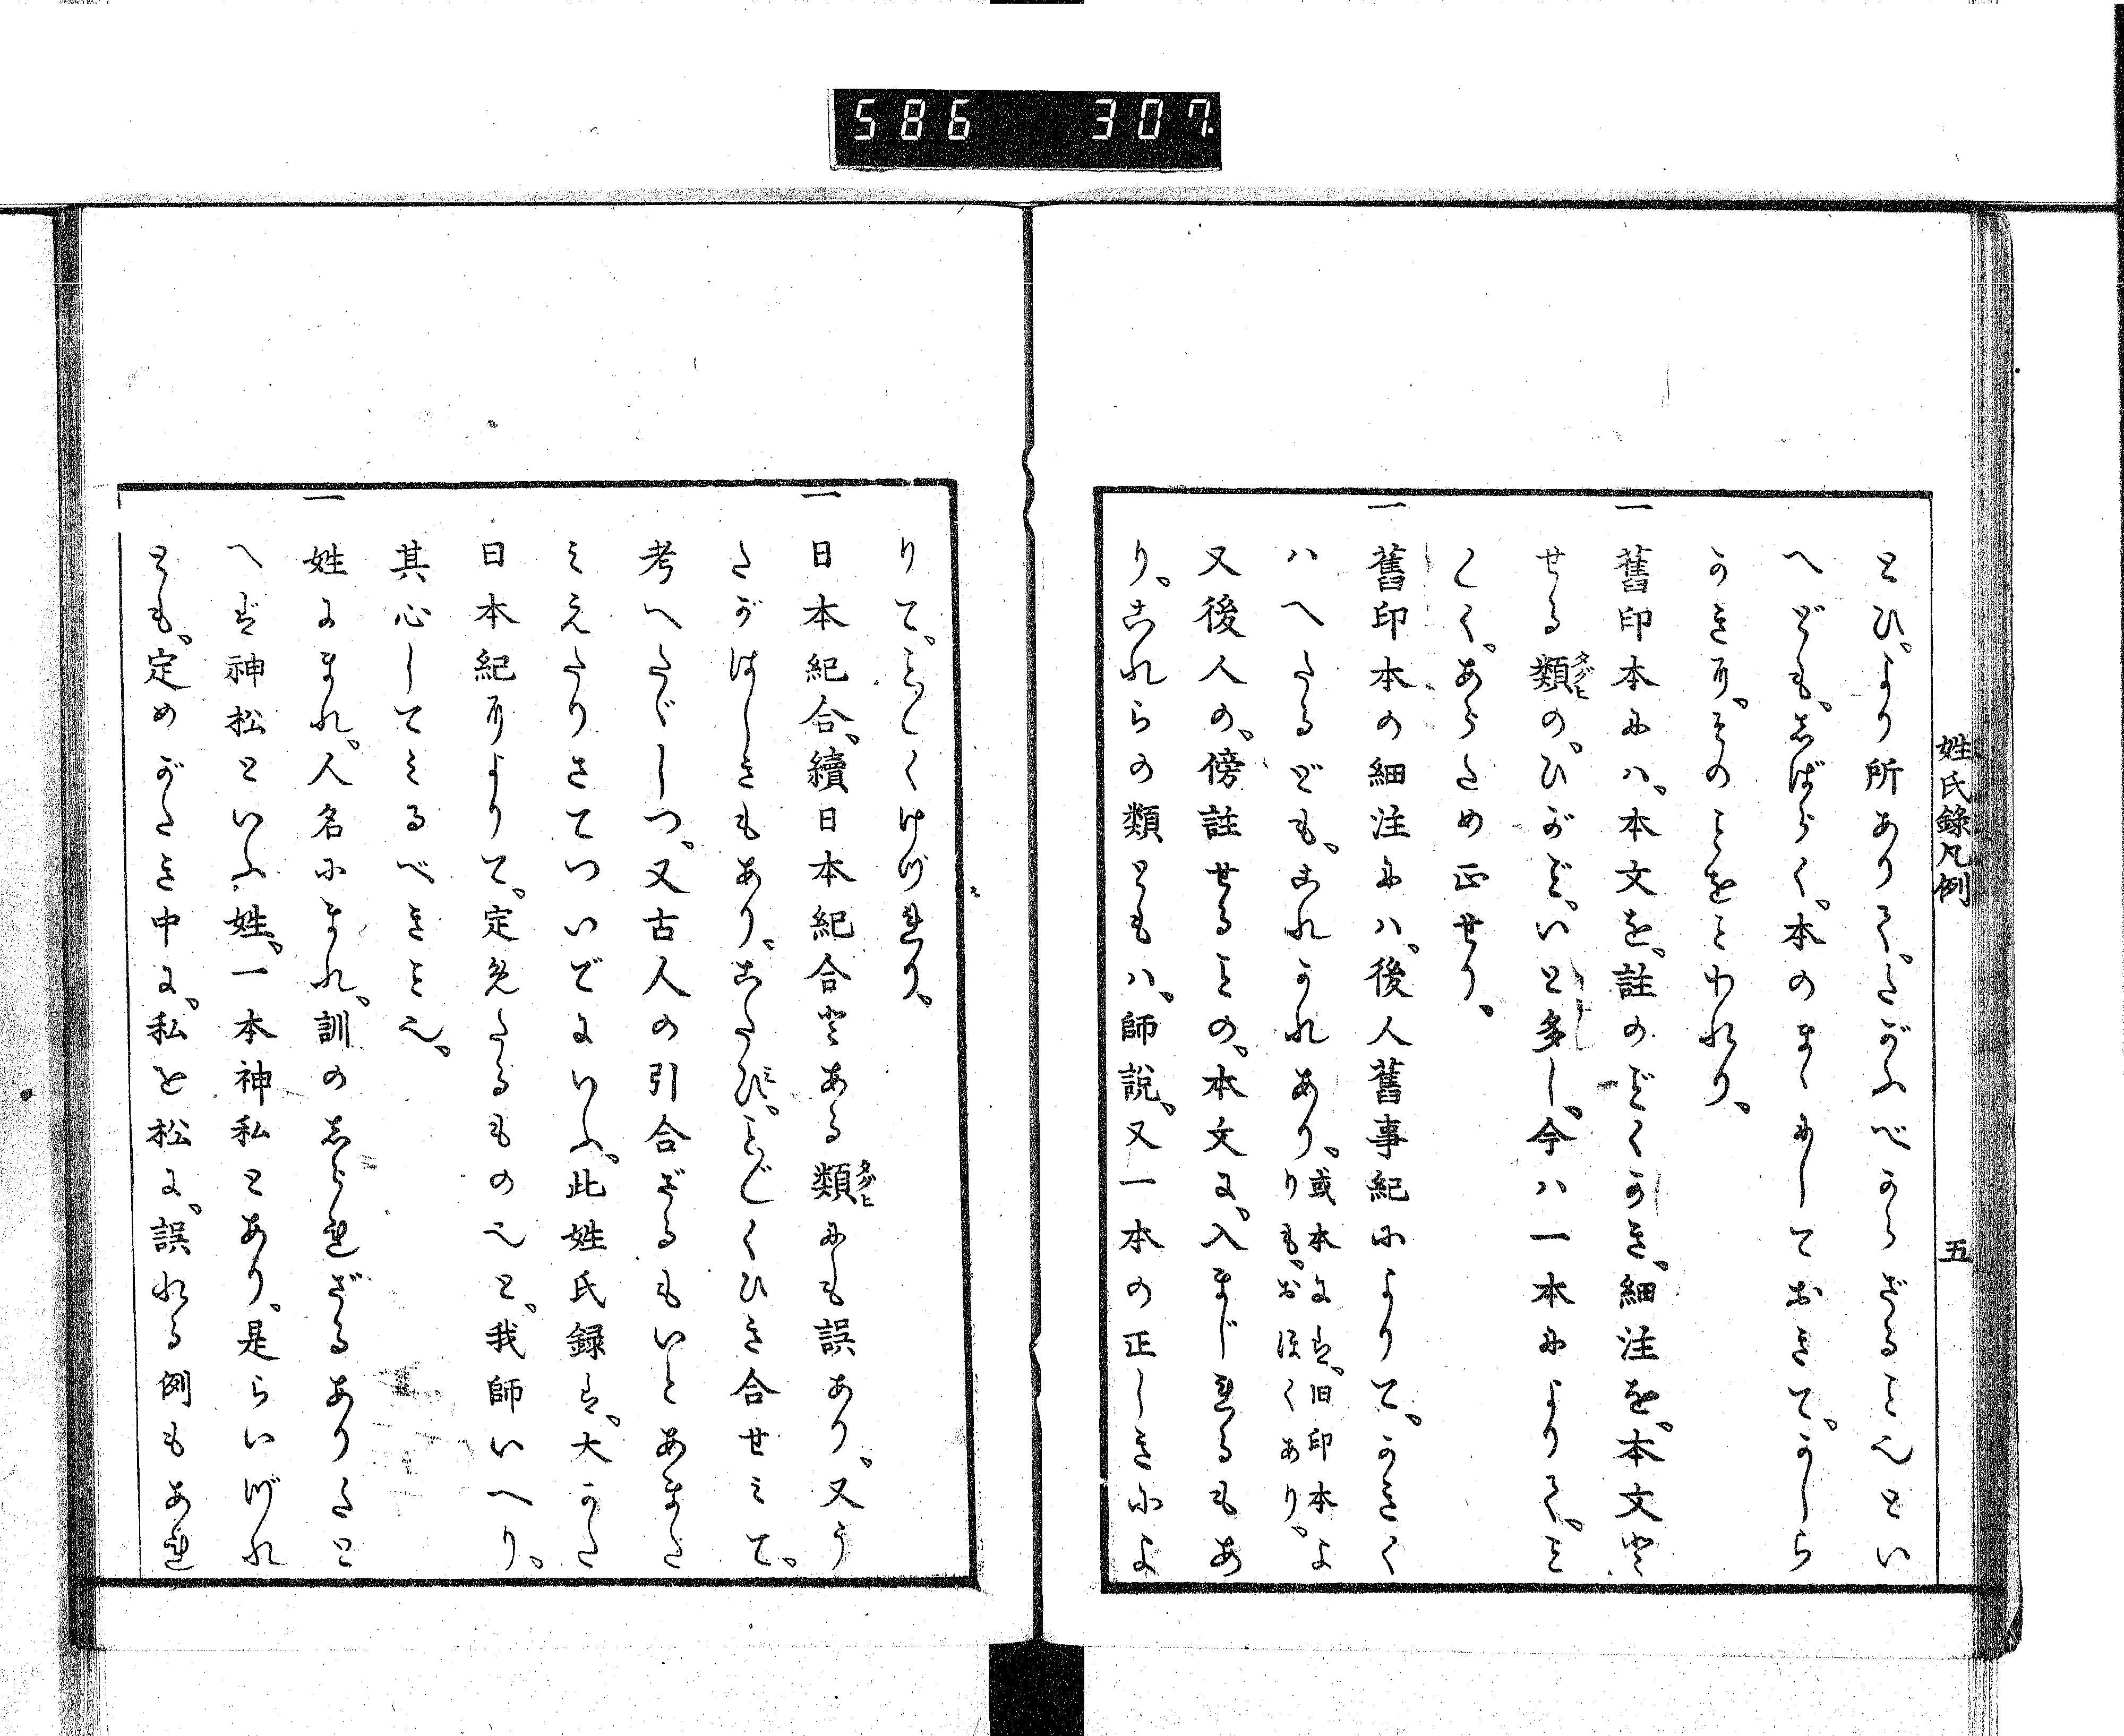 586 307.
姓氏錄凡例 五
とひ。より所ありて。たがふべからざることゝい
へども。しばらく。本のまゝにしておきて。かしら
がきに。そのことをことわれり。
一 舊印本にハ。本文を。註のごとくかき。細注を。本文と
せる類の。ひがごと。いと多し。今ハ一本によりて。こと
〴〵く。あらため正せり。
一 舊印本の細注にハ。後人舊事紀によりて。かきく
ハへたるども。これかれあり。或本には。旧印本よりも。おほくあり。
又後人の。傍註せることの。本文に。入まじれるもあ
り。これらの類ともハ。師説。又一本の正しきによ
りて。ことごとくけづれり。
一 日本紀合。續日本紀合とある類にも誤あり。又う
たがはしきもあり。こたび。ことごとくひき合せミて。
考へたゞしつ。又古人の引合ざるもいとあまた
ミえたりさてついでにいふ。此姓氏録は。大かた
日本紀によりて。定めたるもの也と。我師いへり。
其心してミるべきこと也。
一 姓にまれ。人名にまれ。訓のしられざるありたと
へば神松といふ姓。一本神私とあり。是らいづれ
とも。定めがたき中に。私を松に。誤れる例もあれ